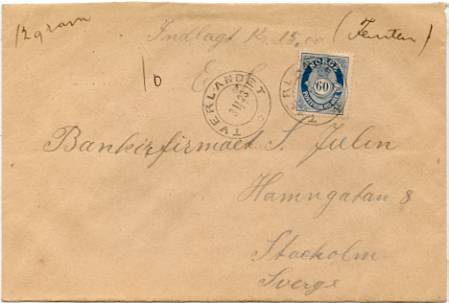 12 gram
Indlagt K. 15,00 (Femten)
10
TVERLANDET
NORGE
60
TVERL
Bankirfirmaet S. Julin
Hamngatan 8
Stockholm
Sverge